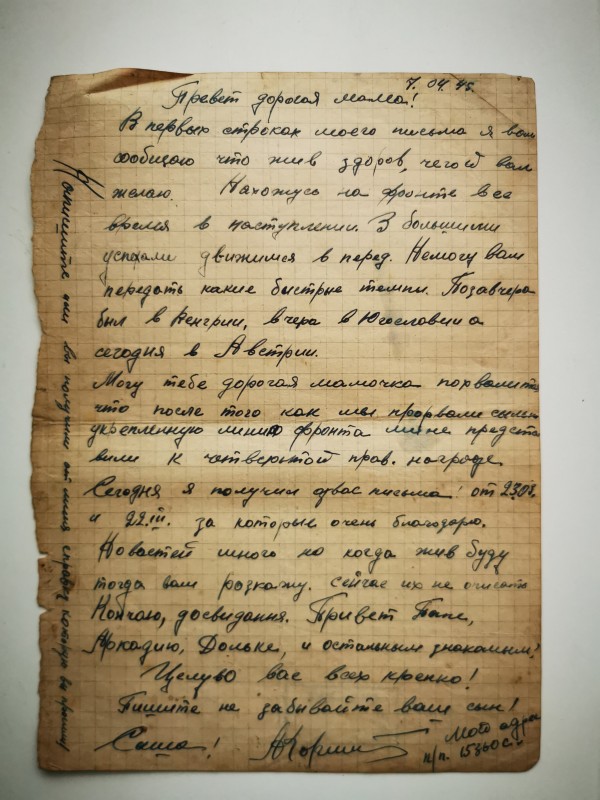 7. 04. 45.
Превет дорогая мама!
В первых строках моего письма я вам
сообщаю что жив здоров, чего и вам
желаю. Нахожусь на фронте все
время в наступлении. З большими
успехами движимся в перед. Немогу вам
передать какие быстрые темпы. Позавчера
был в Венгрии, вчера в Югославии а
сегодня в Австрии.
Могу тебе дорогая мамочка похвалится
что после того как мы прорвали сильно
укрепленную линию фронта меня предста
вили к четверьтой прав. награде
Сегодня я получил два письма! от
и 22.III. за которые очень благодарю.
Новастей много но когда жив буду
тогда вам розкажу. сейчас их не описать
Кончаю, досвидання. Привет Папе,
Аркадию, Дольке, и остальным знакомым!
Целую вас всех крепко!
Пишите не забывайте ваш сын!
Саша!
Мой адрес
п/п.
Напишите или вы получили от меня справку которую вы просили